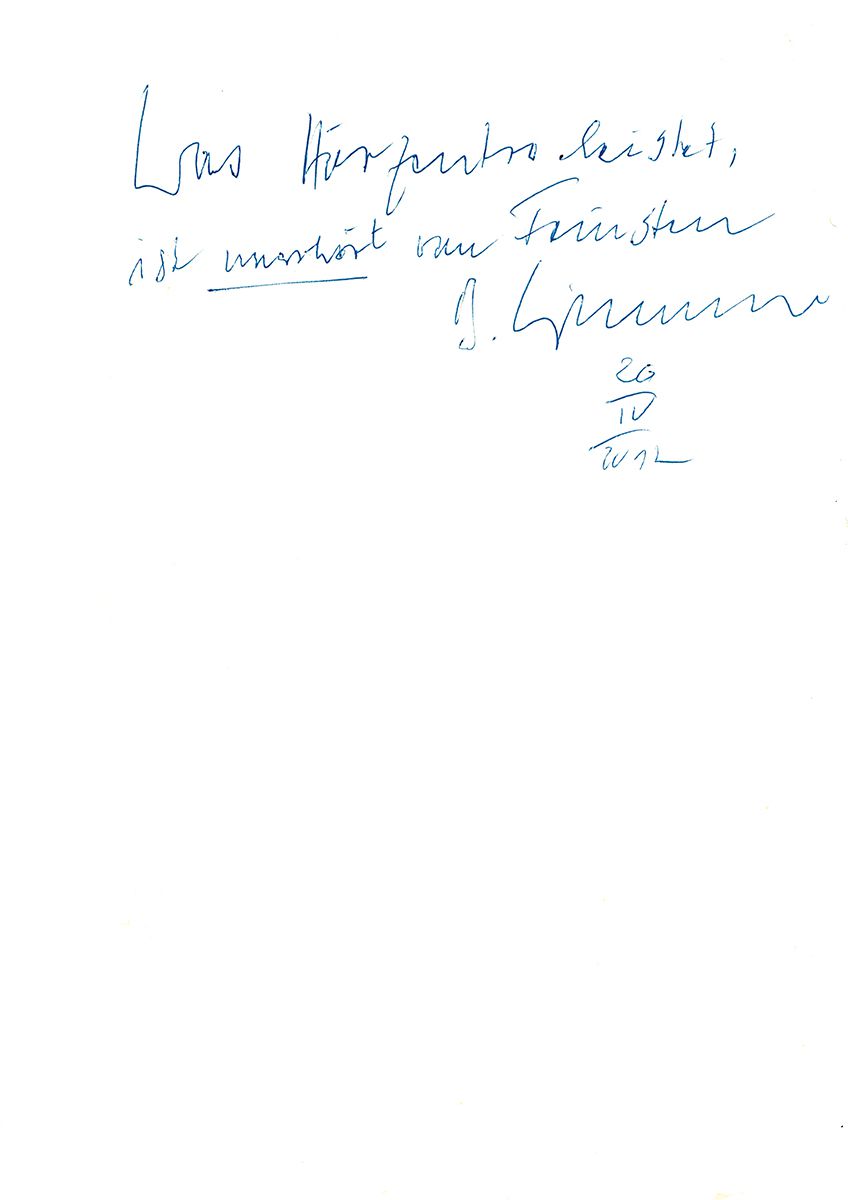 Was Hörzentro leistet,
ist unerhört vom Feinsten
20
IV
2012